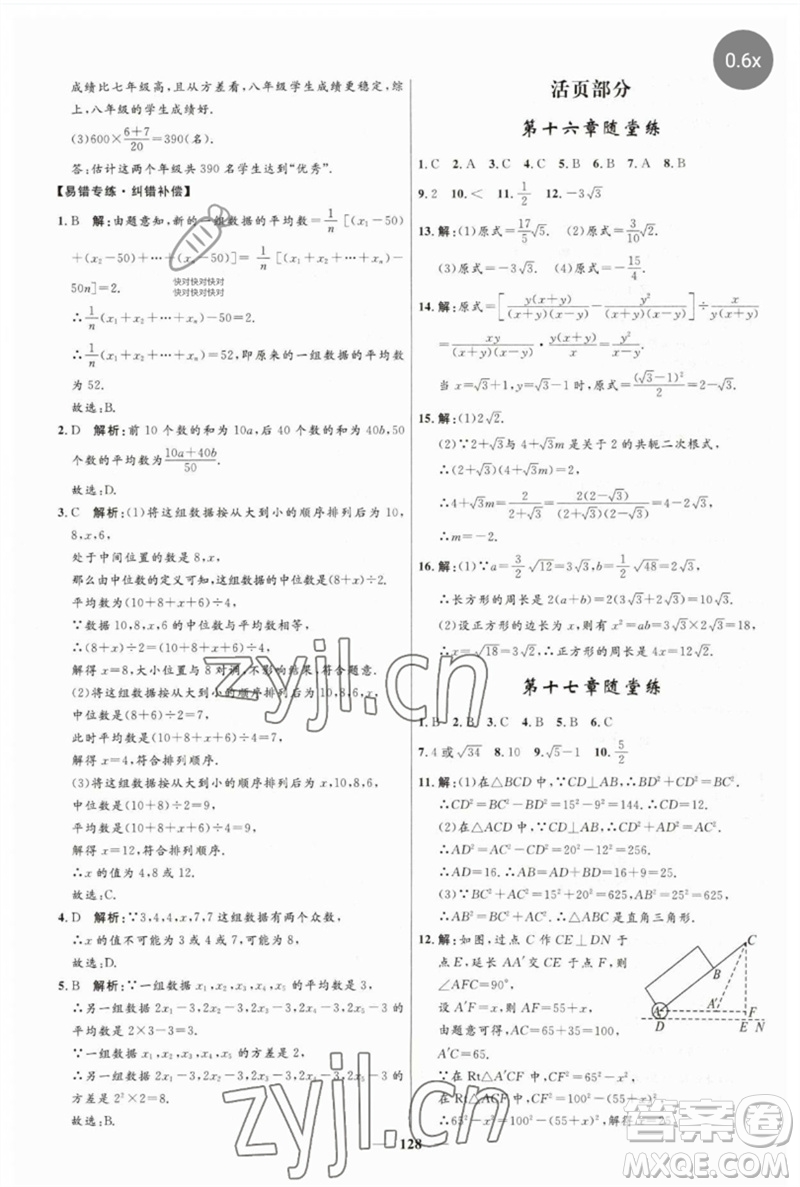 0.6x
成绩比七年级高，且从方差看，八年级学生成绩更稳定，综
上，八年级的学生成绩好.
(3)600×(6+7)/20=390(名).
答:估计这两个年级共 390 名学生达到“优秀”.
【易错专练·纠错补偿】
1. B 解:由题意知,新的一组数据的平均数=1/n[(x₁-50)
+(x₂-50)+…+(xₙ-50)]=1/n[(x₁+x₂+…+xₙ)-
50n]=2.
∴1/n(x₁+x₂+…+xₙ)-50=2.
∴1/n(x₁+x₂+…+xₙ)=52,即原来的一组数据的平均数
为 52.
故选:B.
2. D 解析:前 10 个数的和为 10a,后 40 个数的和为 40b,50
个数的平均数为(10a+40b)/50.
故选:D.
3. C 解析:(1)将这组数据按从大到小的顺序排列后为 10,
8,x,6,
处于中间位置的数是 8,x,
那么由中位数的定义可知,这组数据的中位数是(8+x)÷2.
平均数为(10+8+x+6)÷4,
∵数据 10,8,x,6,的中位数与平均数相等,
∴(8+x)÷2=(10+8+x+6)÷4,
解得 x=8,大小位置与 8 对调,不影响结果,符合题意.
(2)将这组数据按从大到小的顺序排列后为 10,8,6,x,
中位数是(8+6)÷2=7,
此时平均数是(10+8+x+6)÷4=7,
解得 x=4,符合排列顺序.
(3)将这组数据按从大到小的顺序排列后为 x,10,8,6,
中位数是(10+8)÷2=9,
平均数(10+8+x+6)÷4=9,
解得 x=12,符合排列顺序.
∴x 的值为 4,8 或 12.
故选:C.
4. D 解析:∵3,4,4,x,7,7 这组数据有两个众数,
∴x 的值不可能为 4 或 7.
故选:D.
5. B 解析:∵一组数据 x₁,x₂,x₃,x₄,x₅ 的平均数是 3,
∴另一组数据 2x₁-3,2x₂-3,2x₃-3,2x₄-3,2x₅-3 的
平均数是 2×3-3=3.
∵一组数据 x₁,x₂,x₃,x₄,x₅ 的方差是 2,
∴另一组数据 2x₁-3,2x₂-3,2x₃-3,2x₄-3,2x₅-3 的
方差为 2²×2=8.
故选:B.
快对快对快对
快对快对快对
活页部分
第十六章随堂练
1. C 2. A 3. C 4. A 5. B 6. A 7. A 8. B
9. 2 10. < 11. 1/2 12. -3√3
13. 解:(1)原式=17/5√5. (2)原式=3/10√5.
(3)原式=-3√3. (4)原式=-15/4.
14. 解:原式=[y(x+y)/((x+y)(x-y))-y²/((x+y)(x-y))]÷x/(x+y)
=xy/((x+y)(x-y))·(x+y)/x=y/(x-y).
当 x=√3+1,y=√3-1 时,原式=(√3-1)/2.
15. 解:(1)2√2.
(2)∵2+√3与 4+√3m 是关于 2 的共轭二次根式,
∴(2+√3)(4+√3m)=2.
∴4+√3m=2/(2+√3)=2(2-√3)/((2+√3)(2-√3))=4-2√3.
∴m=-2.
16. 解:(1)∵a=3/2√12=3√3,b=1/2√48=2√3,
∴长方形的周长是 2(a+b)=2(3√3+2√3)=10√3.
(2)设正方形的边长为 x,则有 x²=ab=3√3×2√3=18,
∴x=3√2.∴正方形的周长是 4x=12√2.
第十七章随堂练
1. B 2. B 3. C 4. B 5. B 6. C
7. 4 或√34 8. 10 9. √5-1 10. 5/2
11. 解:(1)在△BCD 中,∵CD⊥AB,∴BD²+CD²=BC².
∴CD²=BC²-BD²=15²-9²=144.∴CD=12.
(2)在△ACD 中,∵CD⊥AB,∴CD²+AD²=AC².
∴AD²=AC²-CD²=20²-12²=256.
∴AD=16.∴AB=AD+BD=16+9=25.
(3)∵BC²+AC²=15²+20²=625,AB²=25²=625,
∴AB²=BC²+AC².∴△ABC 是直角三角形.
12. 解:如图,过点 C 作 CE⊥DN 于
点 E,延长 AA′交 CE 于点 F,则
∠AFC=90°,
设 A′F=x,则 AF=55+x,
由题意可得 AC=65+35=100,
A′C=65.
∵在 Rt△A′CF 中,CF²=65²-x²,
在 Rt△ACF 中,CF²=100²-(55+x)²,
∴65²-x²=100²-(55+x)².解得 x=25.
C
B
A′
F
A
D
E
N
128
zyjl.cn
zyjl.cn
答案卷
MXQE.COM